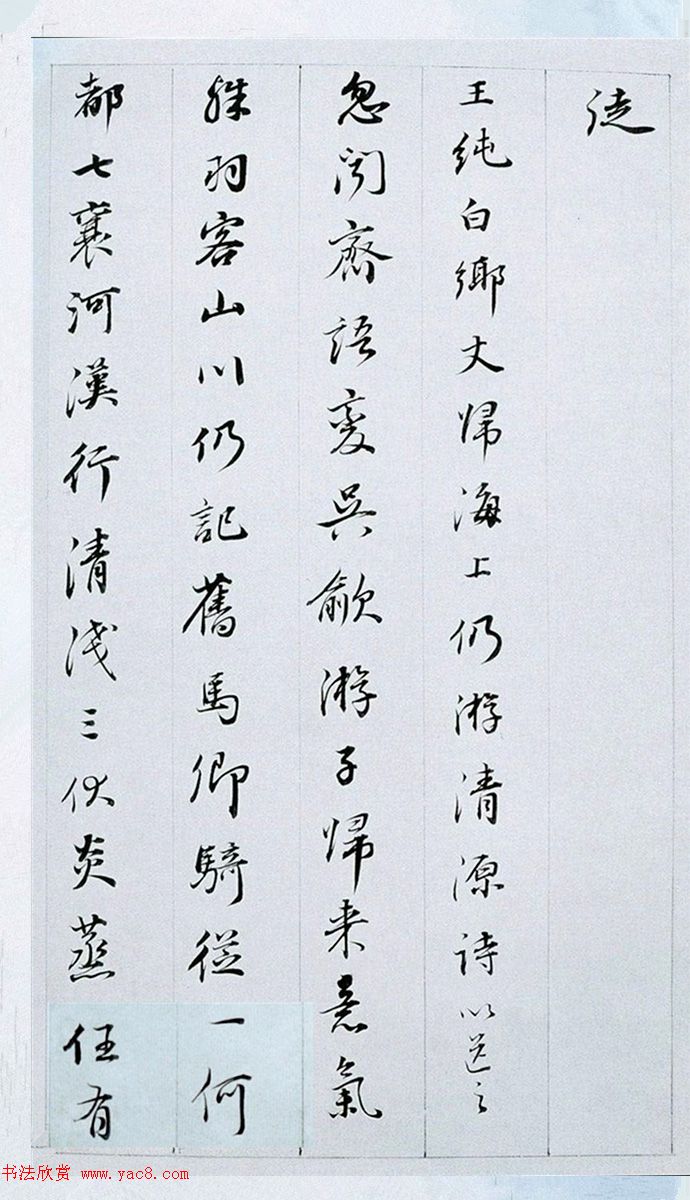 徒
王純白鄉丈歸海上仍游清源詩以送之
忽聞齊語變吳歈游子歸来意氣
殊羽客山川仍記舊馬卿騎從一何
都七襄河漢行清淺三伏炎蒸任有
书法欣赏 www.yac8.com